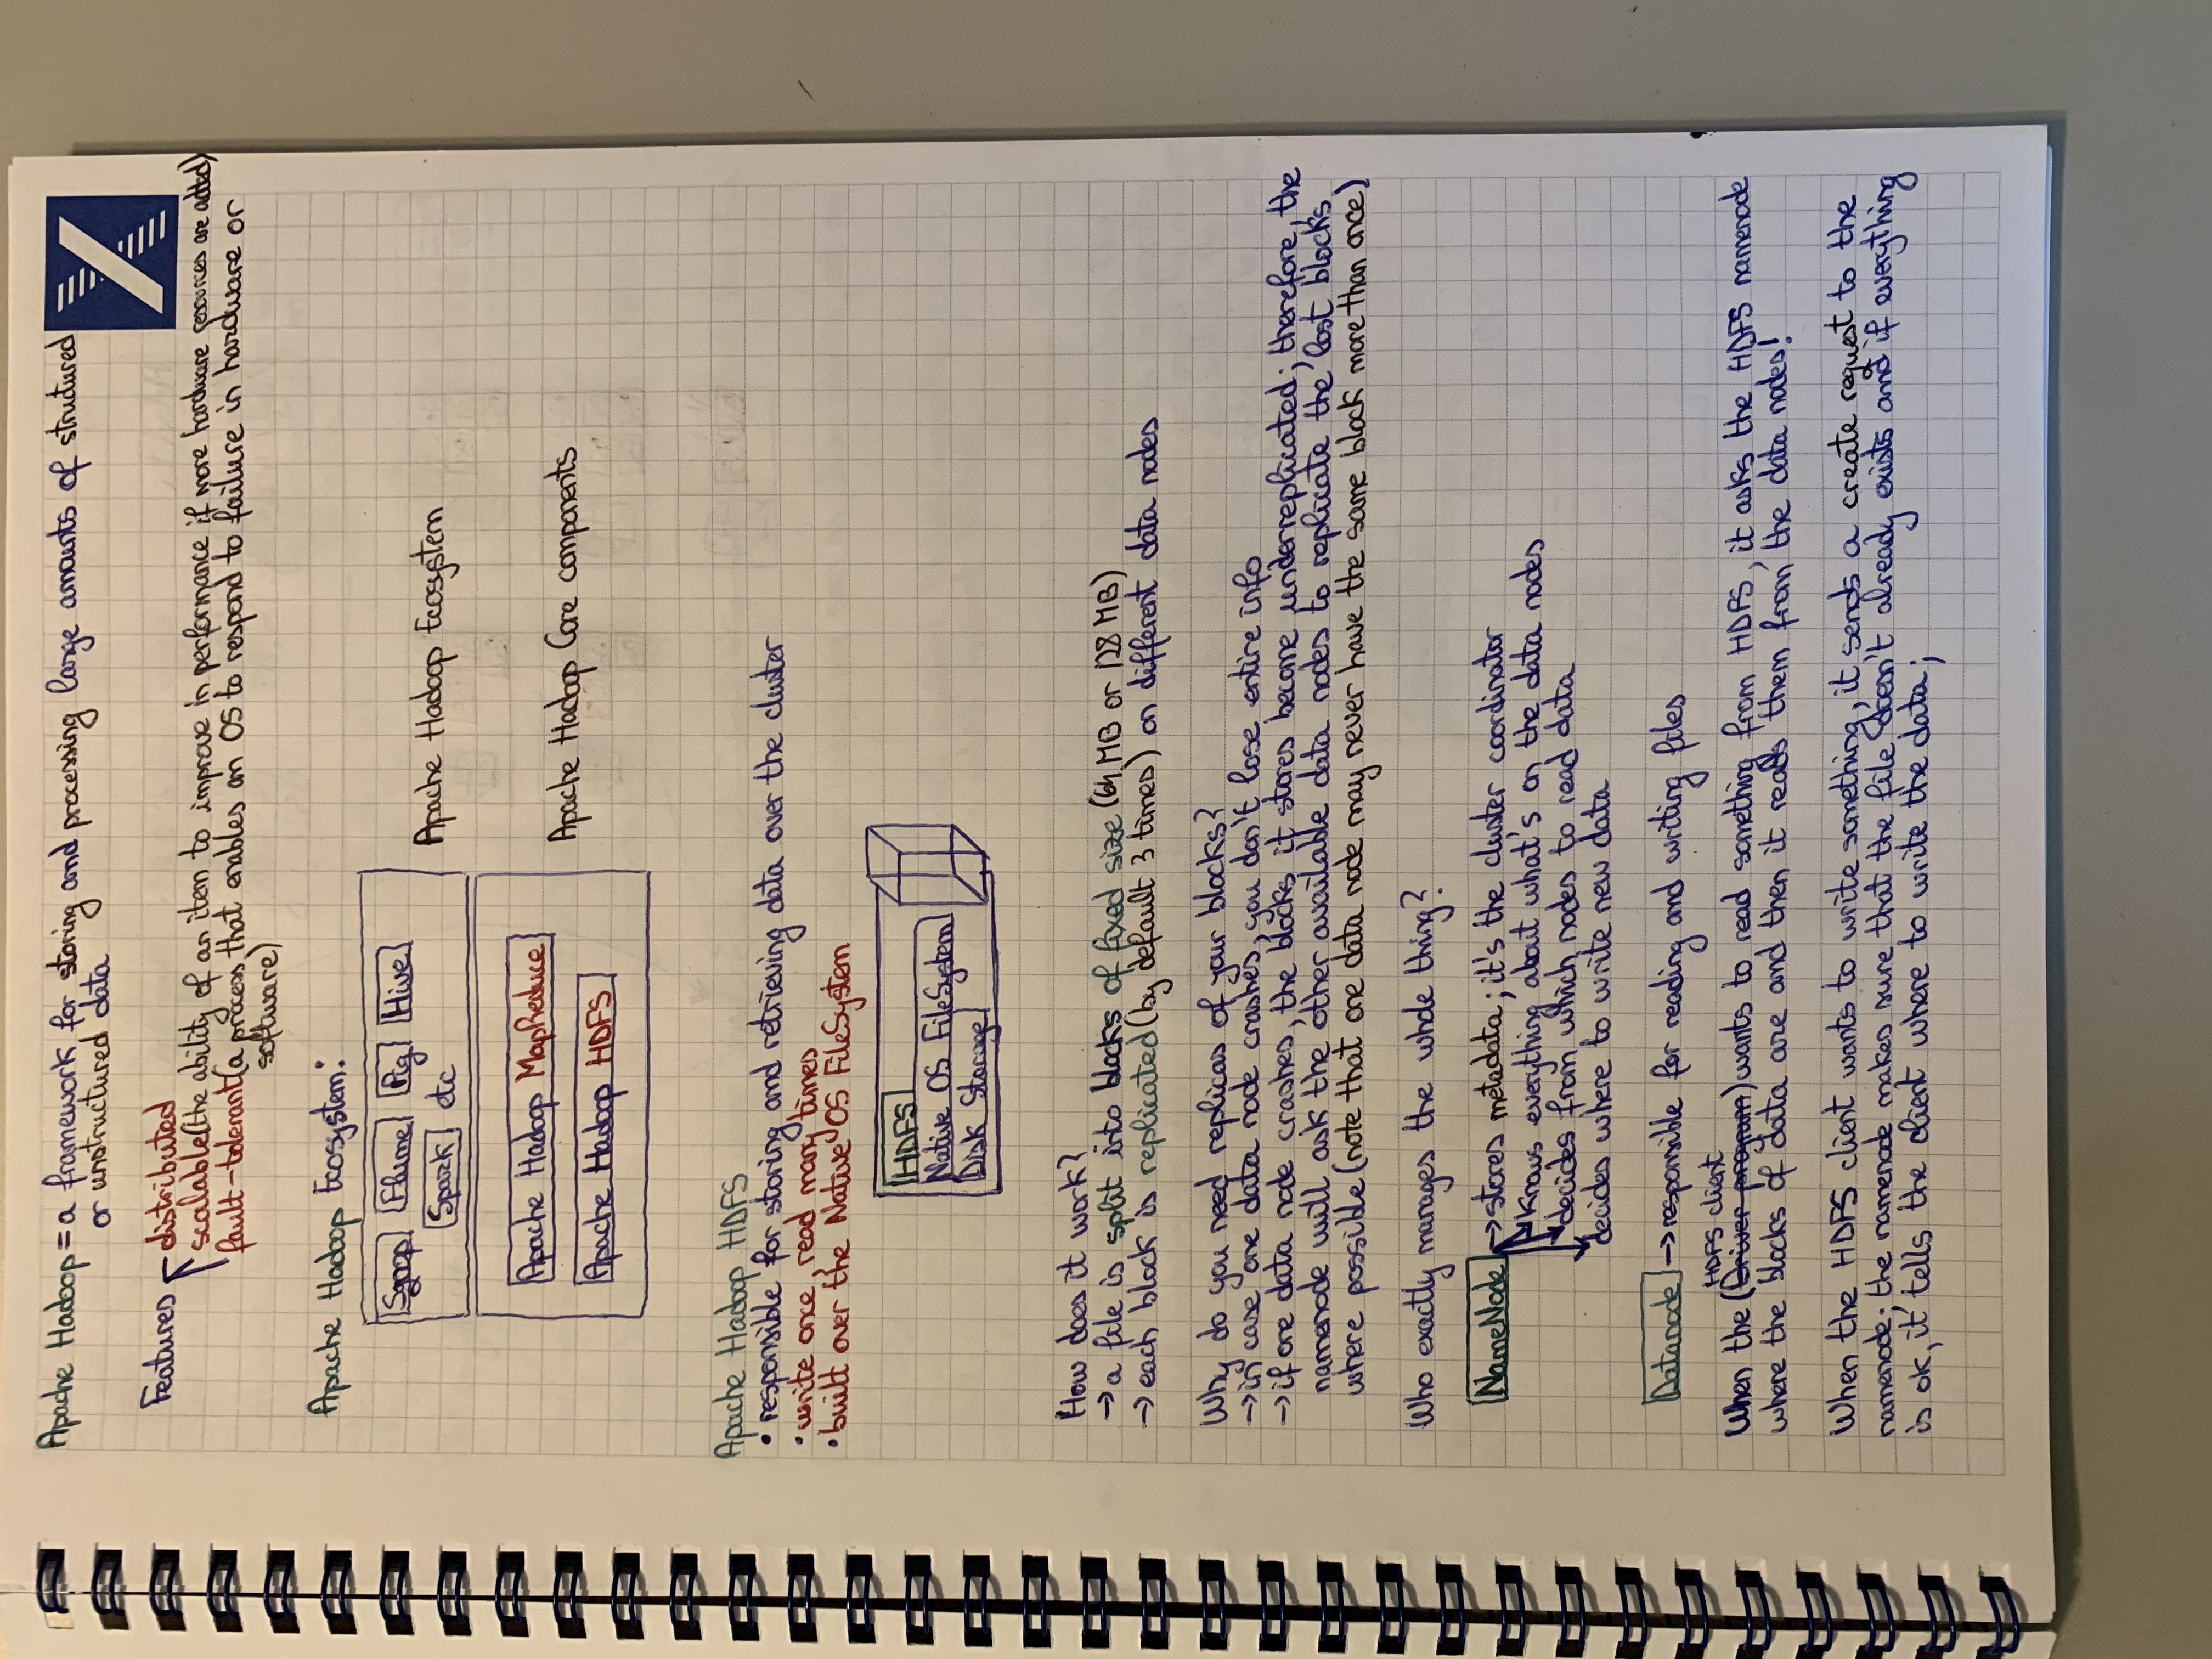 Apache Hadoop = a framework for storing and processing large amounts of structured
or unstructured data
Features
distributed
scalable (the ability of an item to improve in performance if more hardware resources are added)
fault-tolerant (a process that enables an OS to respond to failure in hardware or
software)
Apache Hadoop Ecosystem:
Sqoop Flume Pig Hive
Spark etc
Apache Hadoop Ecosystem
Apache Hadoop MapReduce
Apache Hadoop HDFS
Apache Hadoop Core components
Apache Hadoop HDFS
• responsible for storing and retrieving data over the cluster
• write once, read many times
• built over the Native OS FileSystem
HDFS
Native OS FileSystem
Disk Storage
How does it work?
→ a file is split into blocks of fixed size (64 MB or 128 MB)
→ each block is replicated (by default 3 times) on different data nodes
Why do you need replicas of your blocks?
→ in case one data node crashes, you don't lose entire info
→ if one data node crashes, the blocks it stores become underreplicated; therefore, the
namenode will ask the other available data nodes to replicate the lost blocks
where possible (note that one data node may never have the same block more than once)
Who exactly manages the whole thing?
NameNode → stores metadata; it's the cluster coordinator
knows everything about what's on the data nodes
decides from which nodes to read data
decides where to write new data
Datanode → responsible for reading and writing files
HDFS client
When the (Driver program) wants to read something from HDFS, it asks the HDFS namenode
where the blocks of data are and then it reads them from the data nodes!
When the HDFS client wants to write something, it sends a create request to the
namenode: the namenode makes sure that the file doesn't already exists and if everything
is ok, it tells the client where to write the data;